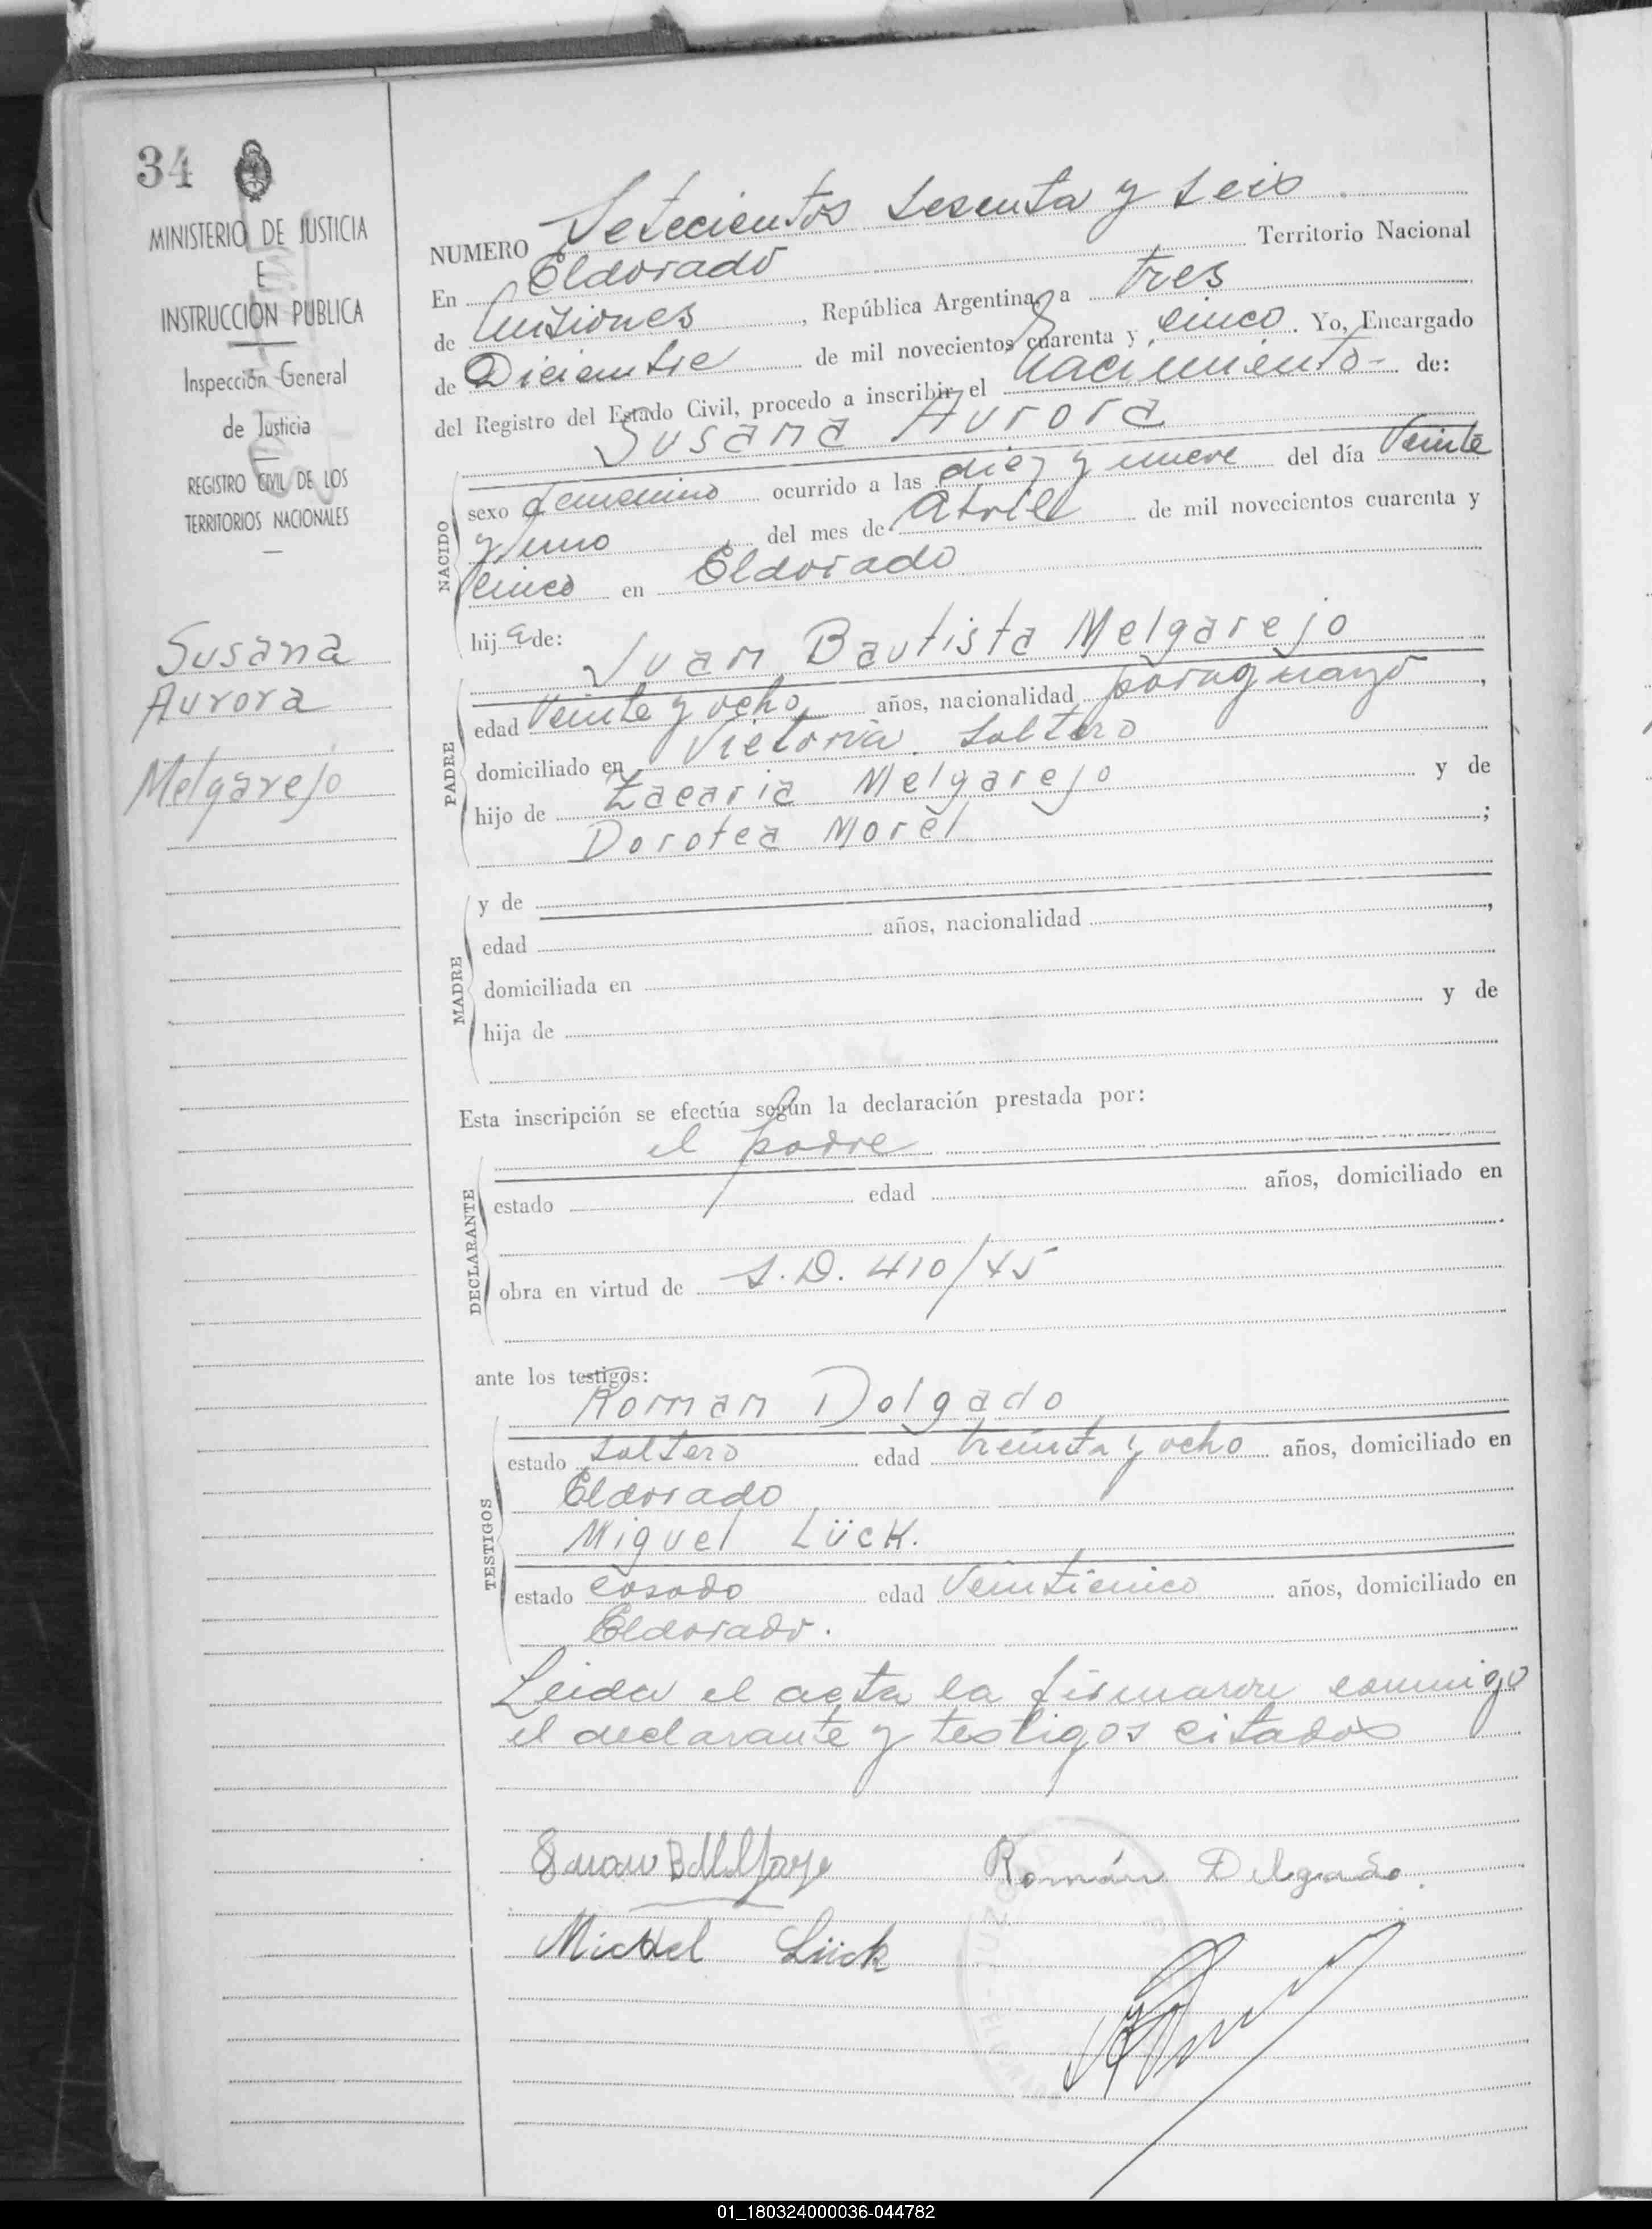 34
MINISTERIO DE JUSTICIA
E
INSTRUCCIÓN PUBLICA
Inspección General
de Justicia
REGISTRO CIVIL DE LOS
TERRITORIOS NACIONALES
Susana
Aurora
Melgarejo
NUMERO Setecientos sesenta y seis.
En Eldorado Territorio Nacional
de Misiones, República Argentina, a tres
de Diciembre de mil novecientos cuarenta y cinco. Yo, Encargado
del Registro del Estado Civil, procedo a inscribir el nacimiento- de:
Susana Aurora
NACIDO
sexo femenino ocurrido a las diez y nueve del día Veinte
y uno del mes de Abril de mil novecientos cuarenta y
cinco en Eldorado
hija de:
Juan Bautista Melgarejo
PADRE
edad Veinte y ocho años, nacionalidad paraguayo,
domiciliado en Victoria. Soltero
hijo de Zacaria Melgarejo y de
Dorotea Morel;
MADRE
y de
edad años, nacionalidad,
domiciliada en
hija de y de
Esta inscripción se efectúa según la declaración prestada por:
el padre
DECLARANTE
estado edad años, domiciliado en
obra en virtud de S.D. 410/45
ante los testigos:
Roman Dolgado
TESTIGOS
estado soltero edad treinta y ocho años, domiciliado en
Eldorado
Miguel Lück.
estado casado edad Veinticinco años, domiciliado en
Eldorado.
Leida el acta la firmaron conmigo
el declarante y testigos citados
Román Delgado.
Michel Lück
01_180324000036-044782